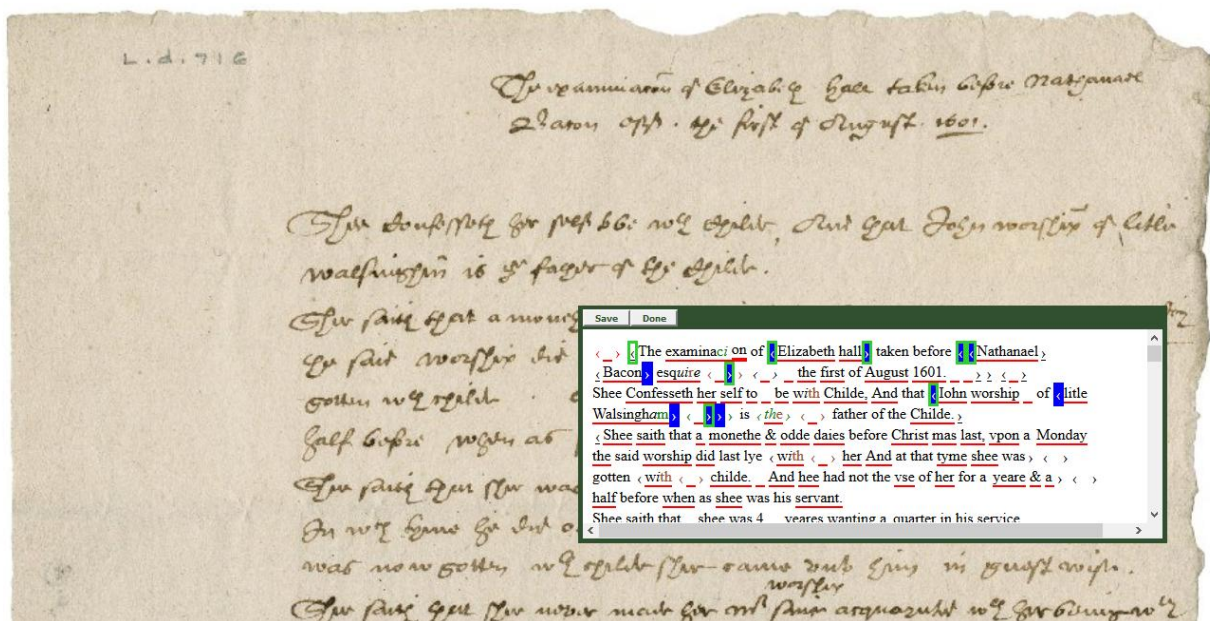 L.d.716
The examinacōn of Elizabeth hall taken before Nathanael
Bacon esq. the first of August. 1601.
Shee Confesseth her self to be wth Childe, And that John worship of litle
Walsinghm̄ is ye father of the Childe.
Shee saith that a moneth
the said worship did
gotten wth childe.
half before when as
Shee saith that shee was
In wch tyme he did
was now gotten wth childe shee came vnto him in guest wise.
worship
Shee saith that shee never made her mr acquainted wth her being wth
Save Done
‹ _ › ‹The examinaci on of ‹Elizabeth hall› taken before ‹ ‹Nathanael›
‹Bacon› esquire ‹ _ › › ‹ _ › _ the first of August 1601. _ _ › › ‹ _ ›
Shee Confesseth her self to _ be with Childe, And that ‹Iohn worship _ of ‹litle
Walsingham› ‹ _ › › › is ‹the› ‹ _ › father of the Childe.›
‹Shee saith that a monethe & odde daies before Christ mas last, vpon a Monday
the said worship did last lye ‹with ‹ _ › her And at that tyme shee was› ‹ ›
gotten ‹with ‹ _ › childe. _ And hee had not the vse of her for a yeare & a› ‹ ›
half before when as shee was his servant.
Shee saith that _ shee was 4 _ yeares wanting a quarter in his service